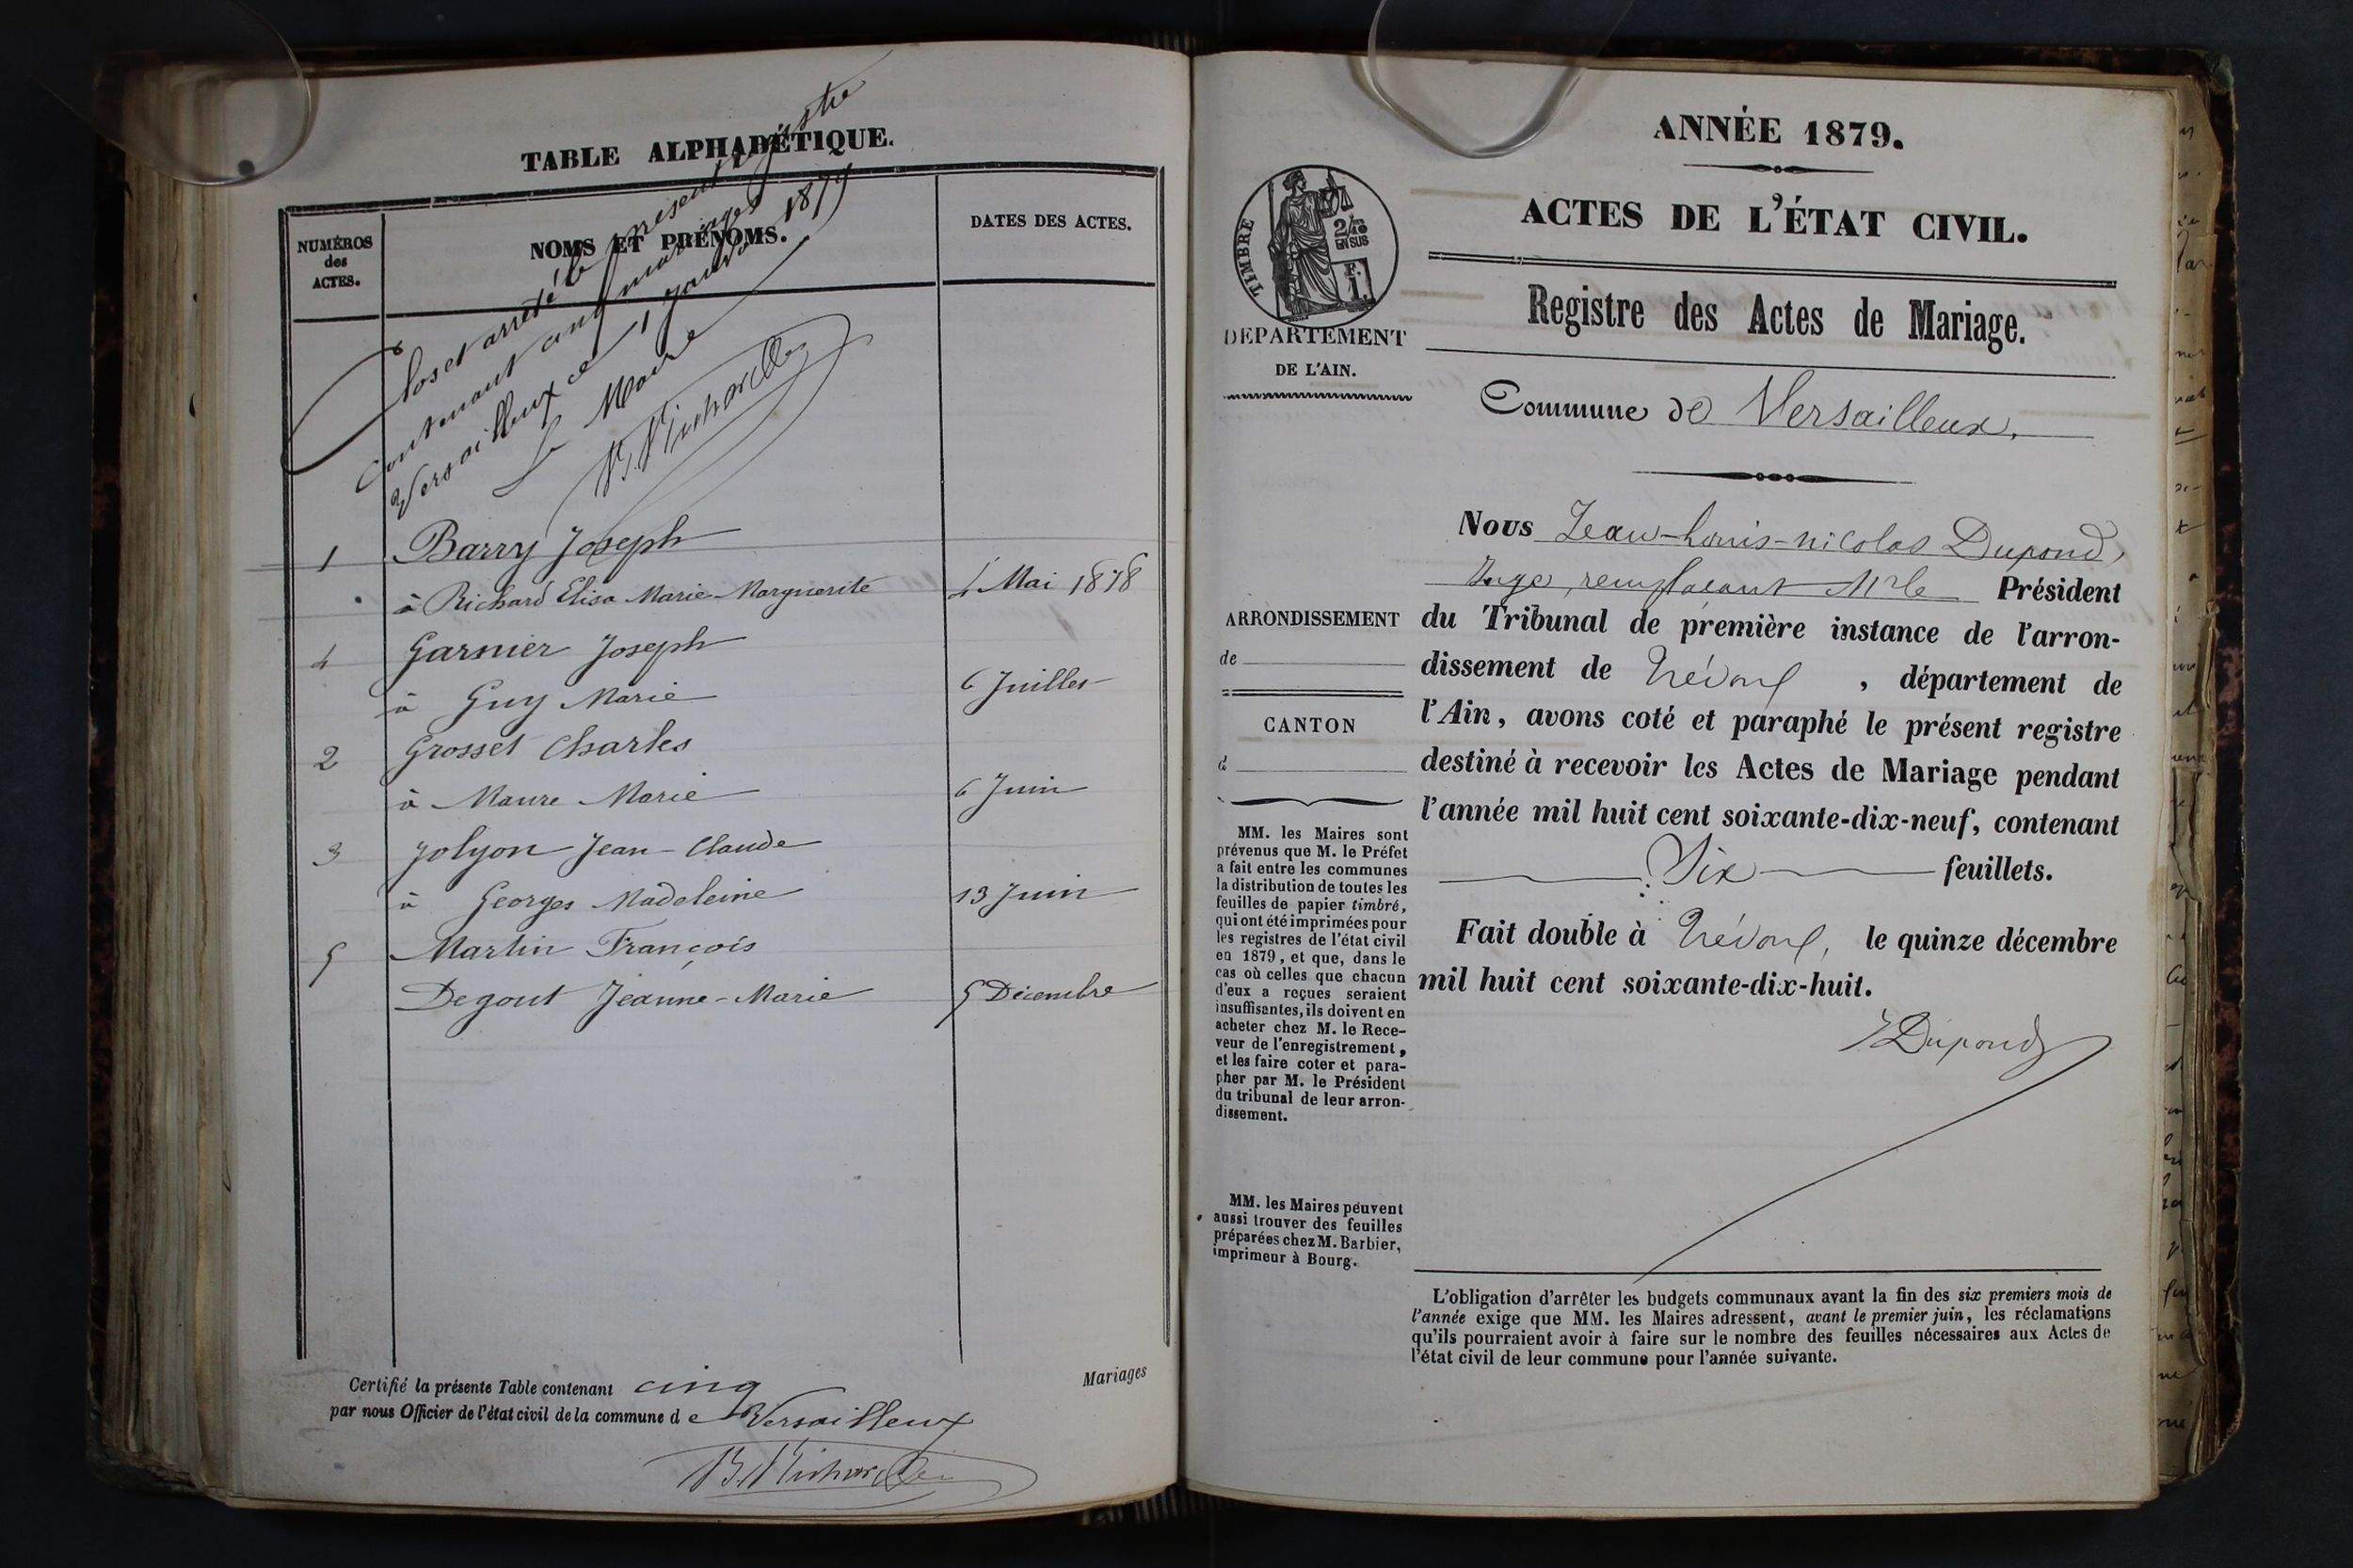 TABLE ALPHABÉTIQUE.
NUMÉROS
des
ACTES.
NOMS ET PRÉNOMS.
DATES DES ACTES.
Clos et arrêté le présent registre
contenant cinq mariages
Versailleux ce 1 Janvier 1879
Le Maire
1 Barry Joseph
à Richard Elisa Marie-Marguerite 4 Mai 1878
4 Garnier Joseph
à Guy Marie 6 Juillet
2 Grosset Charles
à Maure Marie 6 Juin
3 Jolyon Jean-Claude
à Georges Madeleine 13 Juin
5 Martin François
Degout Jeanne-Marie 5 Décembre
Certifié la présente Table contenant cinq Mariages
par nous Officier de l'état civil de la commune de Versailleux
ANNÉE 1879.
ACTES DE L'ÉTAT CIVIL.
TIMBRE
2/10
EN SUS
F.
1
DEPARTEMENT
DE L'AIN.
Registre des Actes de Mariage.
Commune de Versailleux.
Nous Jean-Louis-nicolas Dupond,
Juge, remplaçant Mr le Président
du Tribunal de première instance de l'arron-
dissement de Trévoux, département de
l'Ain, avons coté et paraphé le présent registre
destiné à recevoir les Actes de Mariage pendant
l'année mil huit cent soixante-dix-neuf, contenant
Six feuillets.
Fait double à Trévoux, le quinze décembre
mil huit cent soixante-dix-huit.
Dupond
ARRONDISSEMENT
de
CANTON
d
MM. les Maires sont
prévenus que M. le Préfet
a fait entre les communes
la distribution de toutes les
feuilles de papier timbré,
qui ont été imprimées pour
les registres de l'état civil
en 1879, et que, dans le
cas où celles que chacun
d'eux a reçues seraient
insuffisantes, ils doivent en
acheter chez M. le Rece-
veur de l'enregistrement,
et les faire coter et para-
pher par M. le Président
du tribunal de leur arron-
dissement.
MM. les Maires peuvent
aussi trouver des feuilles
préparées chez M. Barbier,
imprimeur à Bourg.
L'obligation d'arrêter les budgets communaux avant la fin des six premiers mois de
l'année exige que MM. les Maires adressent, avant le premier juin, les réclamations
qu'ils pourraient avoir à faire sur le nombre des feuilles nécessaires aux Actes de
l'état civil de leur commune pour l'année suivante.